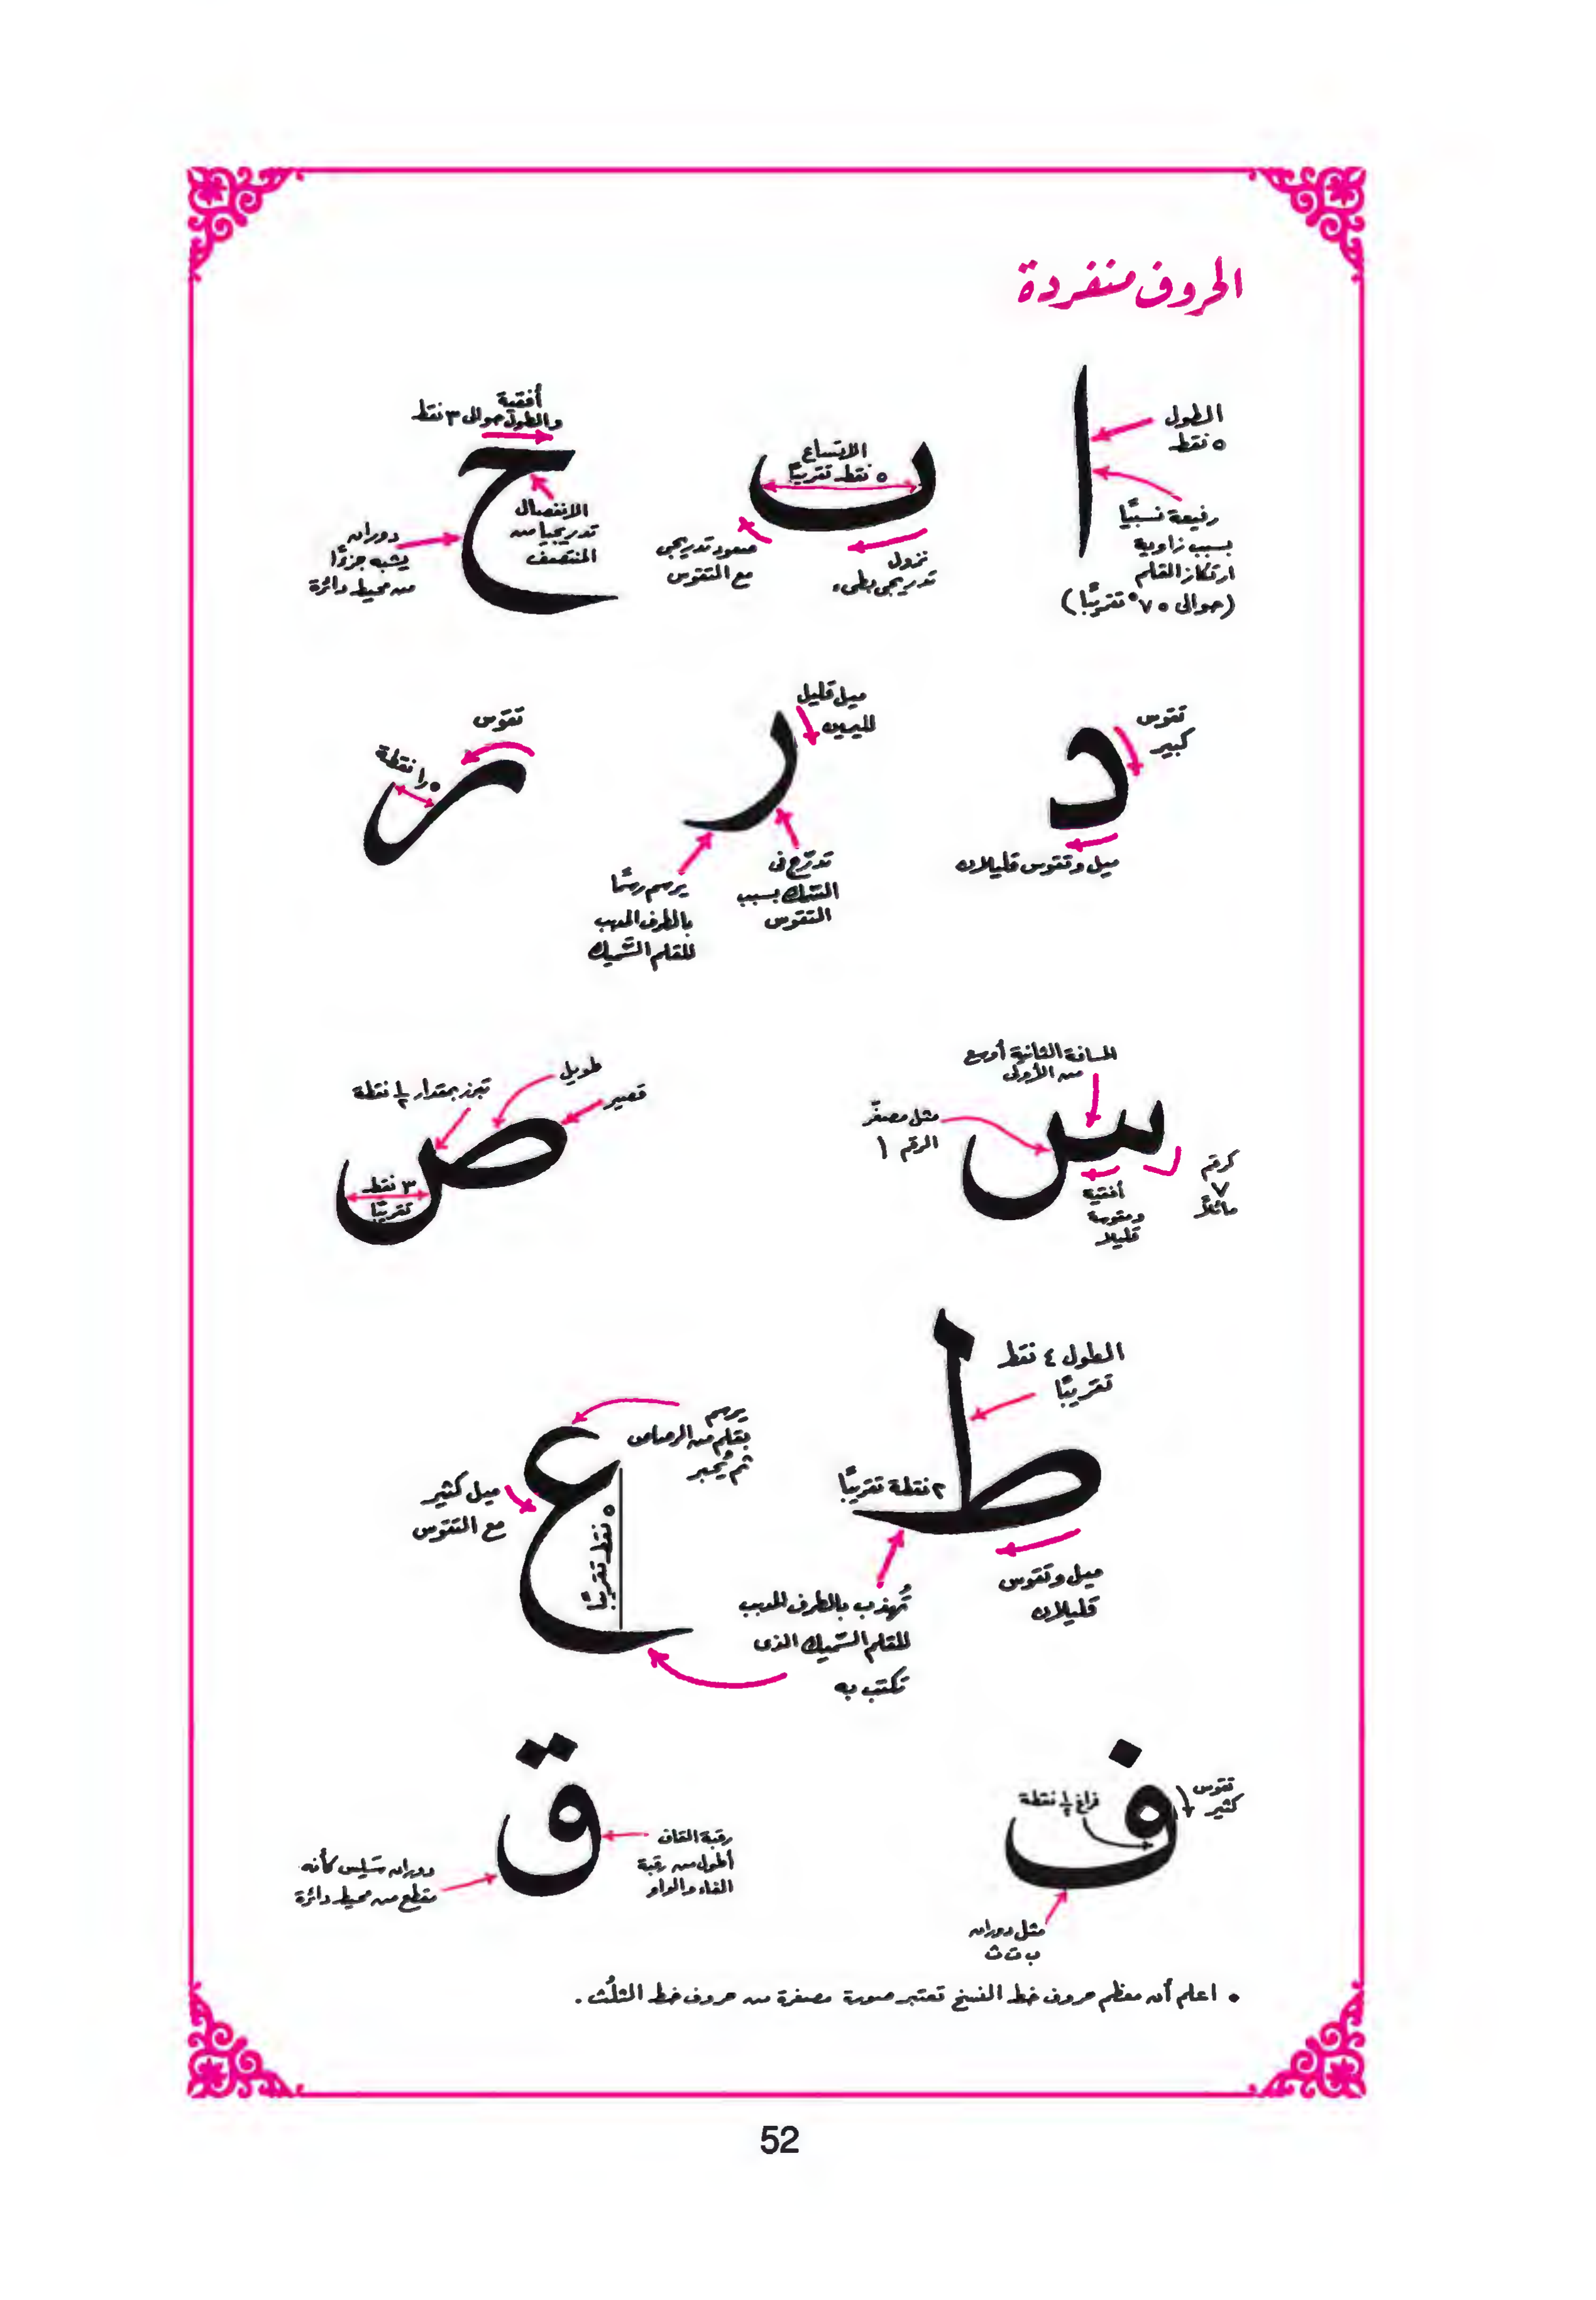 الحروف منفردة
ا
الطول
٥ نقط
رفيعة نسبيًا
بسبب زاوية
ارتكاز القلم
(حوالى ٧٥° تقريبًا)
ٮ
الاتساع
٥ نقط تقريبًا
نزول
تدريجى بطىء
صعود تدريجى
مع التقوس
ح
أفقية
والطول حوالى ٣ نقط
الانفصال
تدريجيا من
المنتصف
دوران
يشبه جزءًا
من محيط دائرة
د
تقوس
كبير
ميل وتقوس قليلان
ر
ميل قليل
لليمين
تدرّج فى
السُّمك بسبب
التقوس
يرسم رسمًا
بالطرف المدبب
للقلم السَّميك
تقوس
١٫٥ نقطة
س
المسافة الثانية أوسع
من الأولى
مثل مصغّر
الرقم ١
كرقم
٧
مائلاً
أفقية
ومقوسة
قليلا
ص
قصير
طويل
تبرز بمقدار ½ نقطة
٣ نقط
تقريبًا
ط
الطول ٤ نقط
تقريبًا
٢ نقطة تقريبًا
ميل وتقوس
قليلان
تُهذب بالطرف المدبب
للقلم السَّميك الذى
تكتب به
ع
يرسم
بقلم من الرصاص
ثم يُحبر
ميل كثير
مع التقوس
٥ نقط تقريبًا
ف
تقوس
كثير
فراغ ½ نقطة
مثل دوران
ب ت ث
ق
رقبة القاف
أطول من رقبة
الفاء والواو
دوران سَلِس كأنه
مقطع من محيط دائرة
• اعلم أن معظم حروف خط النسخ تعتبر صورة مصغرة من حروف خط الثلُث .
52